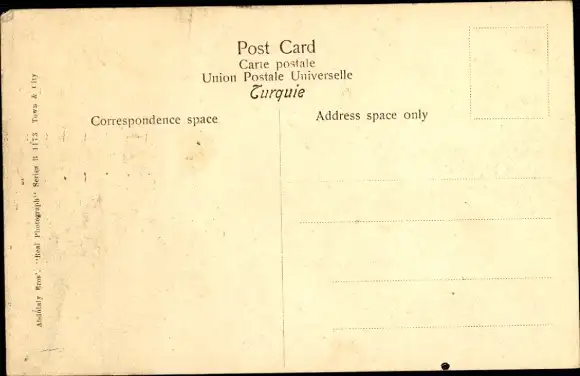 Post Card
Carte postale
Union Postale Universelle
Turquie
Correspondence space
Address space only
"Real Photograph" Series B 1173 Town & City